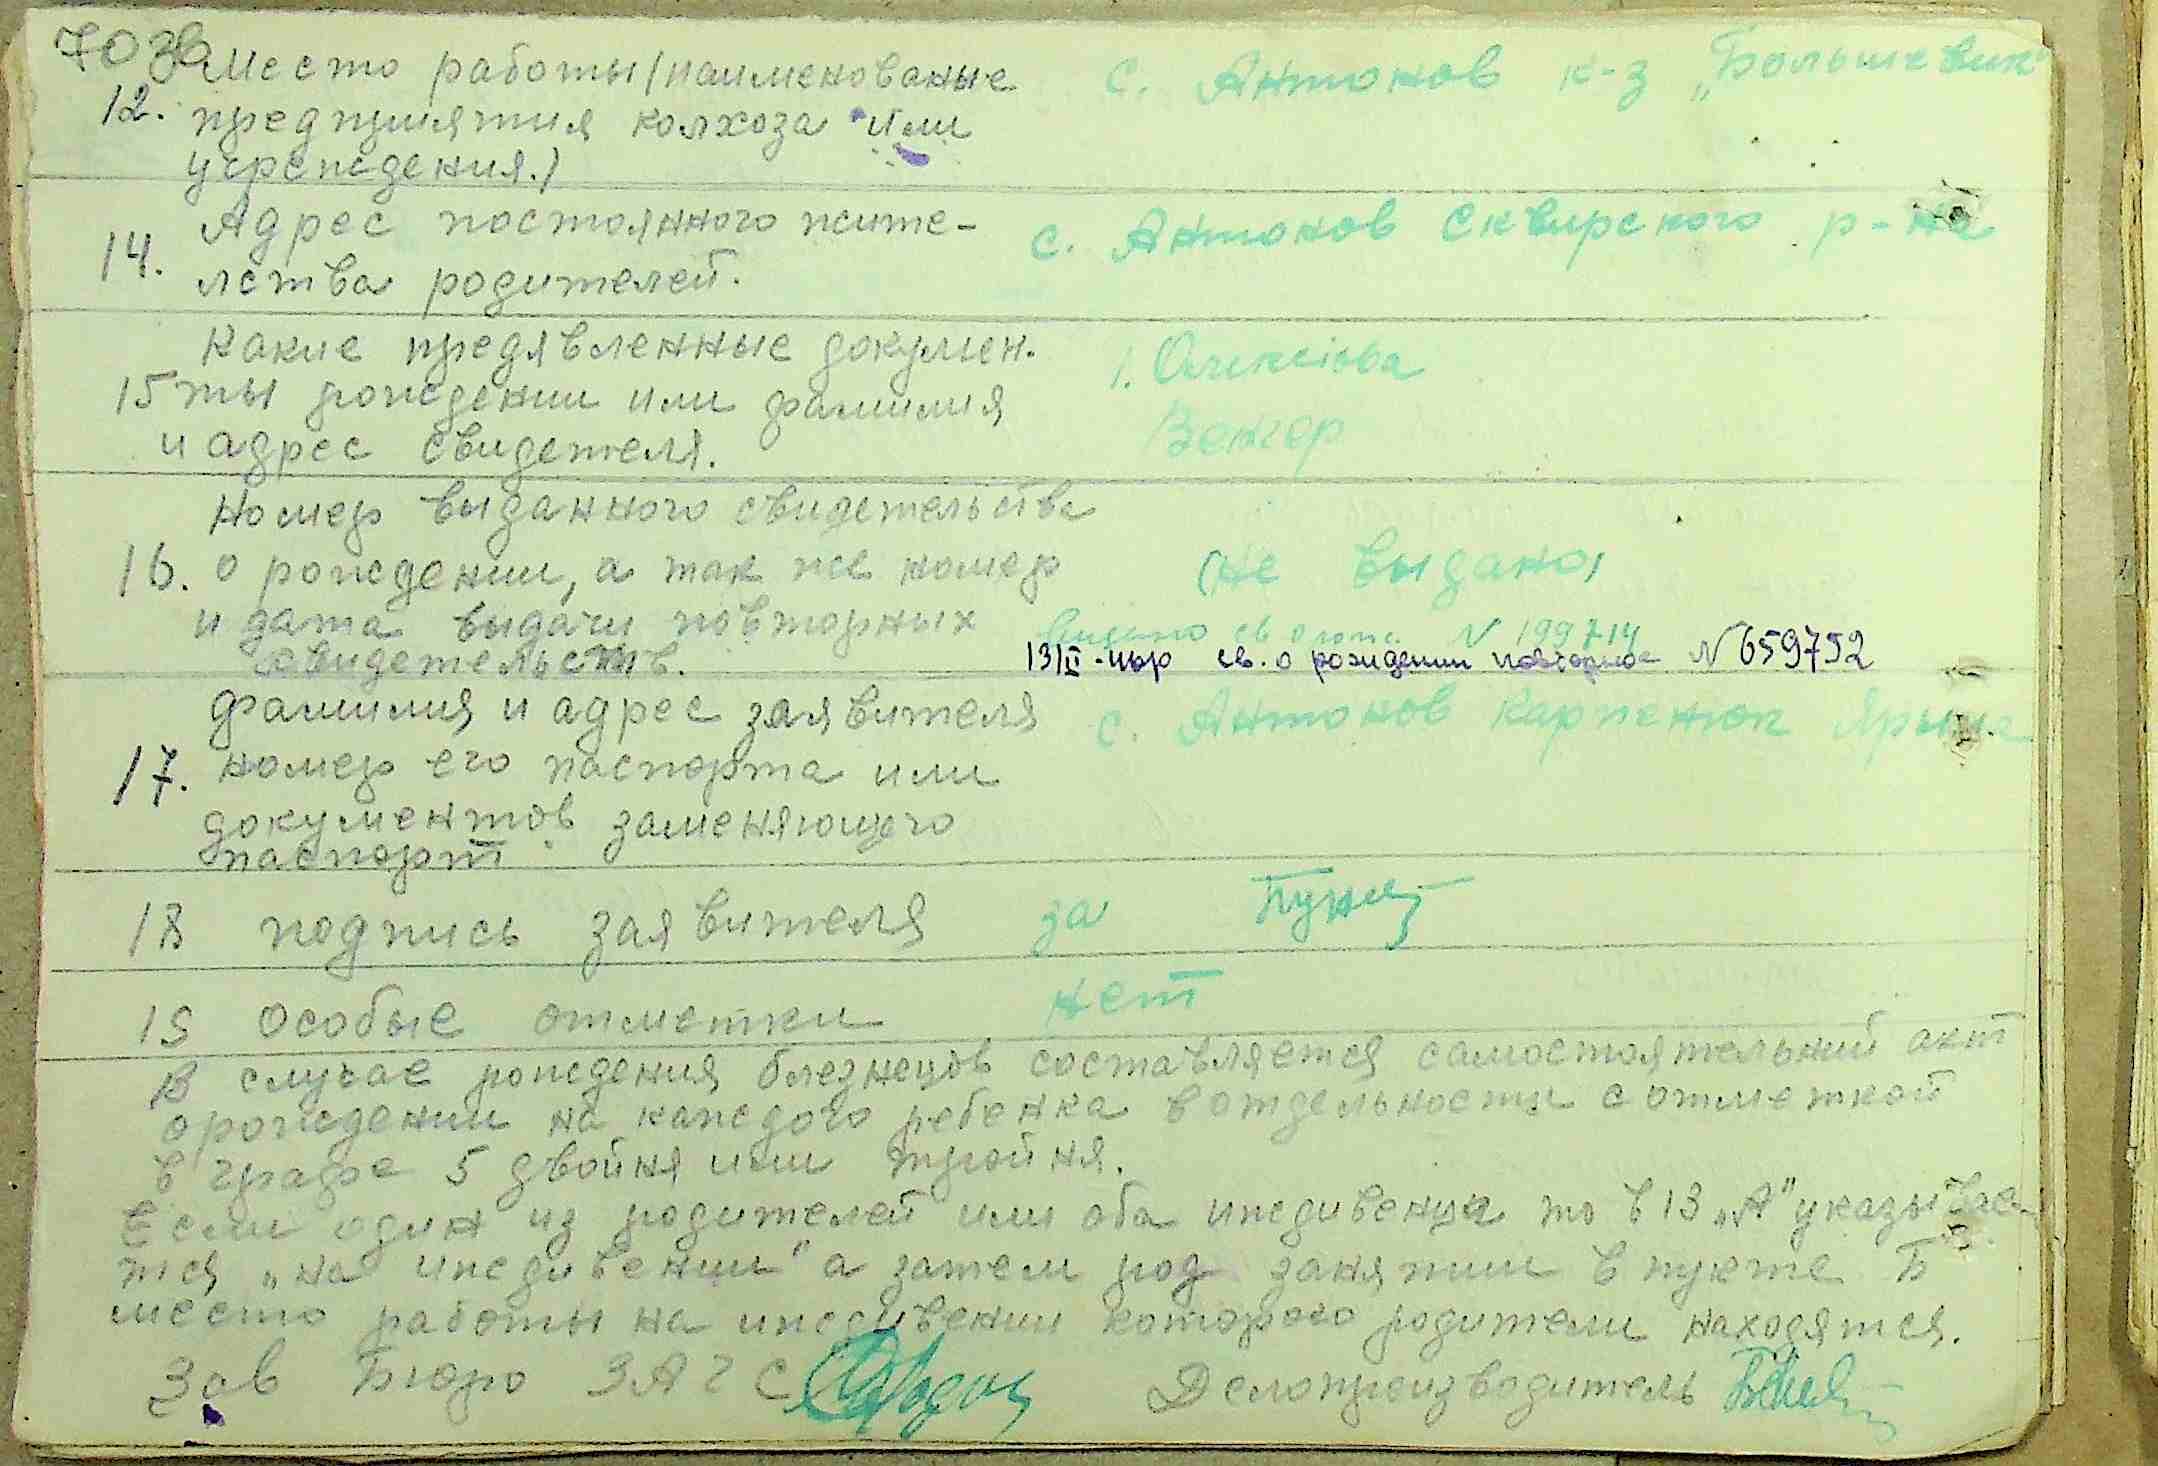 70зв
12. Место работы (наименованые с. Антонов к-з „Большевик"
предприятия колхоза или
учреждения.)
14. Адрес постоянного жите- с. Антонов Сквирского р-на
лства родителей.
Какие предявленные докумен- 1. Олексієва
15 ты рождении или фамилия
и адрес свидетеля. Венгер
Номер выданного свидетельства
16. о рождении, а так же номер (не выдано)
и дата выдачи повторных N 199714
свидетельств. 13/II- св. о рождении повторное N 659792
Фамилия и адрес заявителя с. Антонов Карпенюк
17. номер его паспорта или
документов заменяющего
паспорт
18 подпись заявителя за
19 Особые отметки нет
В случае рождения близнецов составляется самостоятельний акт
о рождении на каждого ребенка в отдельности с отметкой
в графе 5 двойня или тройня.
Если один из родителей или оба иждивенца то в 13 „А" указывае-
тся „на иждивении" а затем род занятии в пункте Б
место работы на иждивении которого родители находятся.
Зав Бюро ЗАГС Делопроизводитель